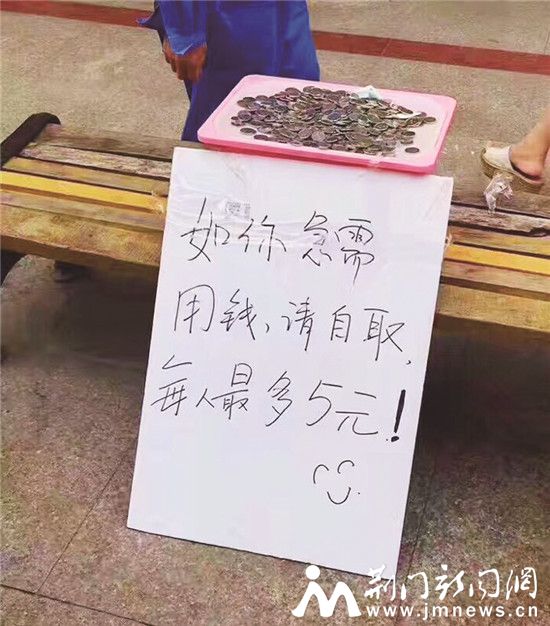 如你急需
用钱、请自取,
每人最多5元!
荆门新闻网
www.jmnews.cn